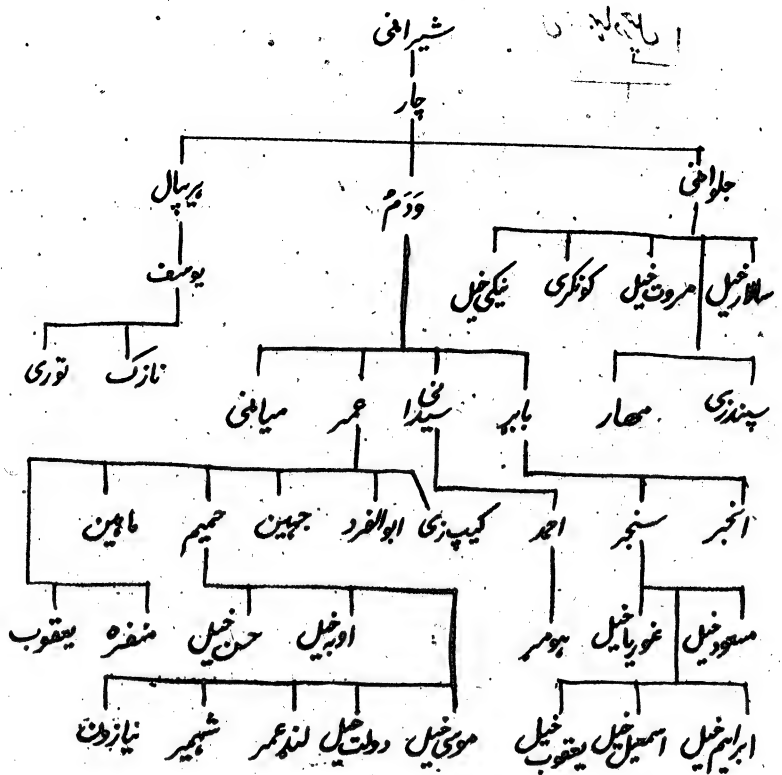 شیرانی
چار
جلوانی ودم ہریپال
سالارخیل مروت خیل کونکری نیکی خیل یوسف
سپندزی مھار بابر سیدانی عمر میانی نازک توری
انجر سنجر احمد کیپ زی ابوالفرد جہین حمیم ماہین
مسعودخیل غوریاخیل ہومر اوبہ خیل حسن خیل منفزہ یعقوب
ابراہیم خیل اسمعیل خیل یعقوب خیل موسیٰ خیل دولت خیل لنڈ عمر شہمیر نیازون